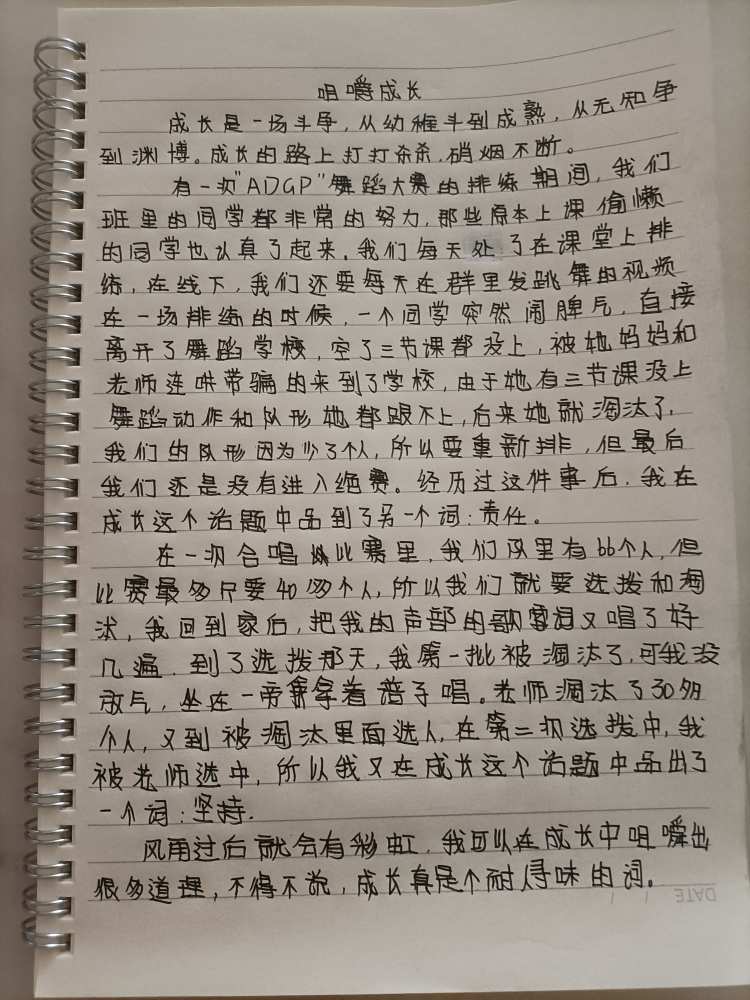 咀嚼成长
成长是一场斗争，从幼稚斗到成熟，从无知争
到渊博。成长的路上打打杀杀，硝烟不断。
有一次"ADGP"舞蹈大赛的排练期间，我们
班里的同学都非常的努力，那些原本上课偷懒
的同学也认真了起来。我们每天处了在课堂上排
练，在线下，我们还要每天在群里发跳舞的视频
在一场排练的时候，一个同学突然闹脾气，直接
离开了舞蹈学校，空了三节课都没上，被她妈妈和
老师连哄带骗的来到了学校，由于她有三节课没上
舞蹈动作和队形她都跟不上，后来她就淘汰了，
我们的队形因为少了个人，所以要重新排，但最后
我们还是没有进入绝赛。经历过这件事后，我在
成长这个话题中品到了另一个词：责任。
在一次合唱比赛里，我们队里有66个人，但
比赛最多只要40多个人，所以我们就要选拨和淘
汰，我回到家后，把我的声部的歌词又唱了好
几遍，到了选拨那天，我第一批被淘汰了，可我没
放气，坐在一旁拿着谱子唱。老师淘汰了30多
个人，又到被淘汰里面选人，在第二次选拨中，我
被老师选中，所以我又在成长这个话题中品出了
一个词：坚持.
风雨过后就会有彩虹，我可以在成长中咀嚼出
很多道理，不得不说，成长真是个耐人寻味的词。
DATE / /